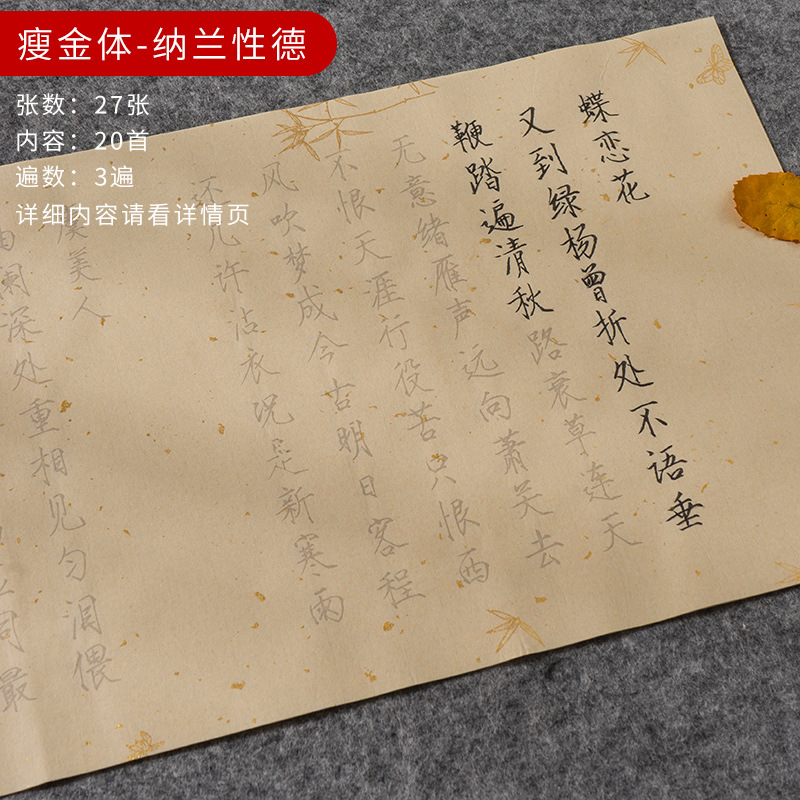 瘦金体-纳兰性德
张数：27张
内容：20首
遍数：3遍
详细内容请看详情页
蝶恋花
又到绿杨曾折处不语垂
鞭踏遍清秋路衰草连天
无意绪雁声远向萧关去
不恨天涯行役苦只恨西
风吹梦成今古明日客程
还几许沾衣况是新寒雨
虞美人
曲阑深处重相见匀泪偎
同最